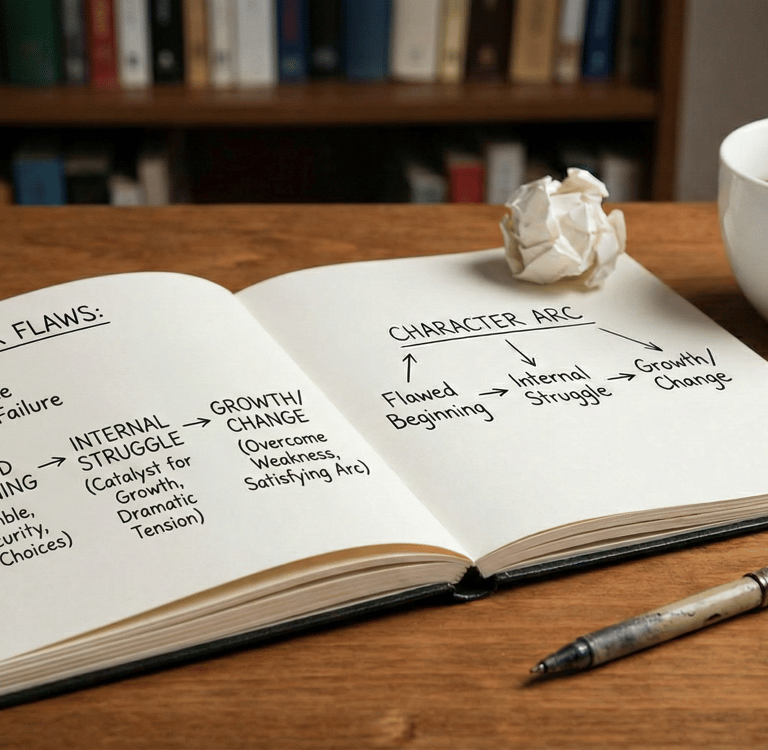 FLAWS:
Failure
INTERNAL
STRUGGLE
(Catalyst for
Growth,
Dramatic
Tension)
GROWTH/
CHANGE
(Overcome
Weakness,
Satisfying Arc)
Choices)
CHARACTER ARC
Flawed
Beginning
Internal
Struggle
Growth/
Change